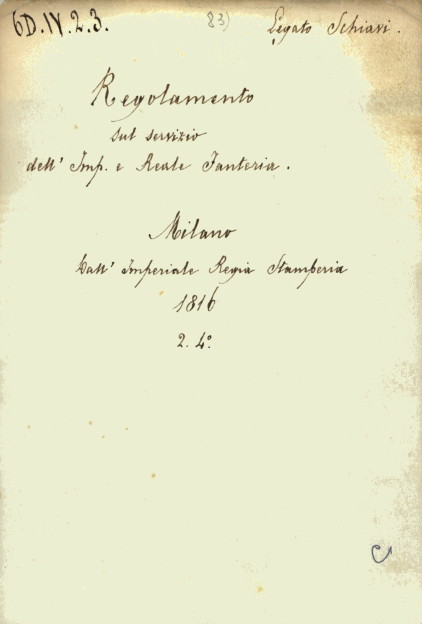 6D.IV.2.3. 83) Legato Schiavi.
Regolamento
sul servizio
dell' Imp. e Reale Fanteria.
Milano
Dall' Imperiale Regia Stamperia
1816
2. 4°.